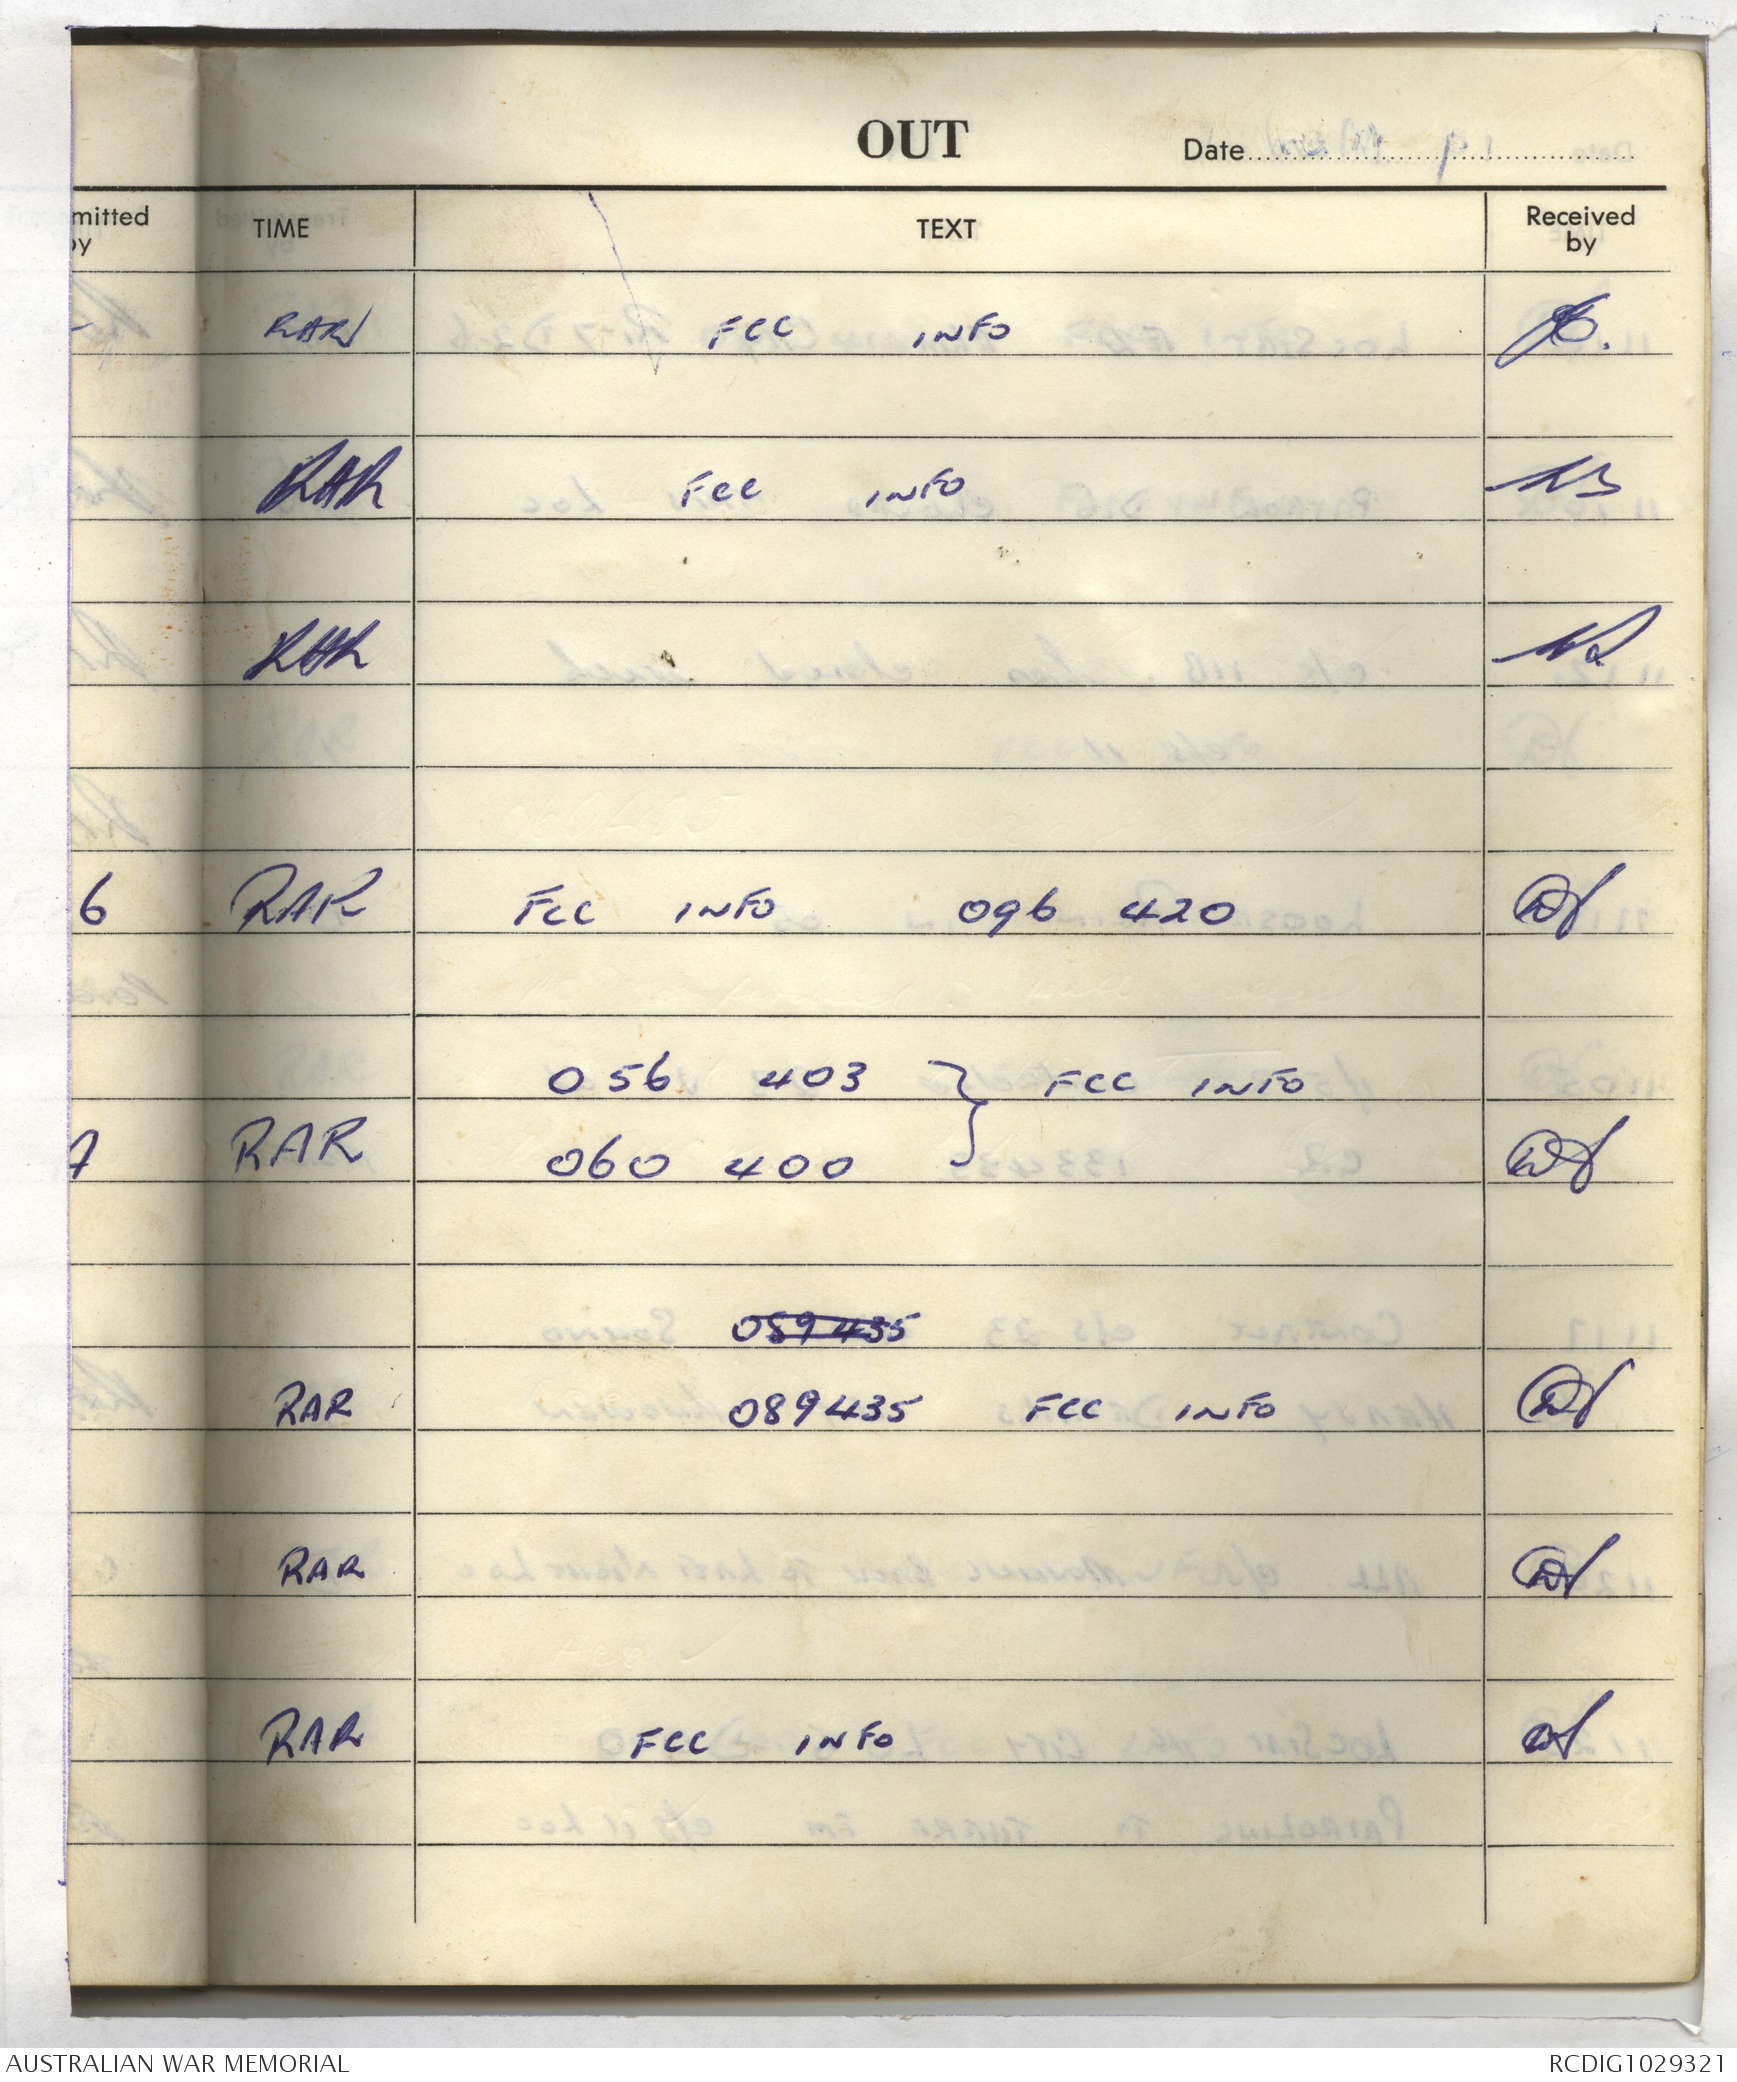 OUT
Date
mitted by TIME TEXT Received by
RAR FCC INFO
RAR FCC INFO
RAR
6 RAR FCC INFO 096 420
056 403 } FCC INFO
RAR 060 400
089435
RAR 089435 FCC INFO
RAR
RAR FCC INFO
AUSTRALIAN WAR MEMORIAL RCDIG1029321